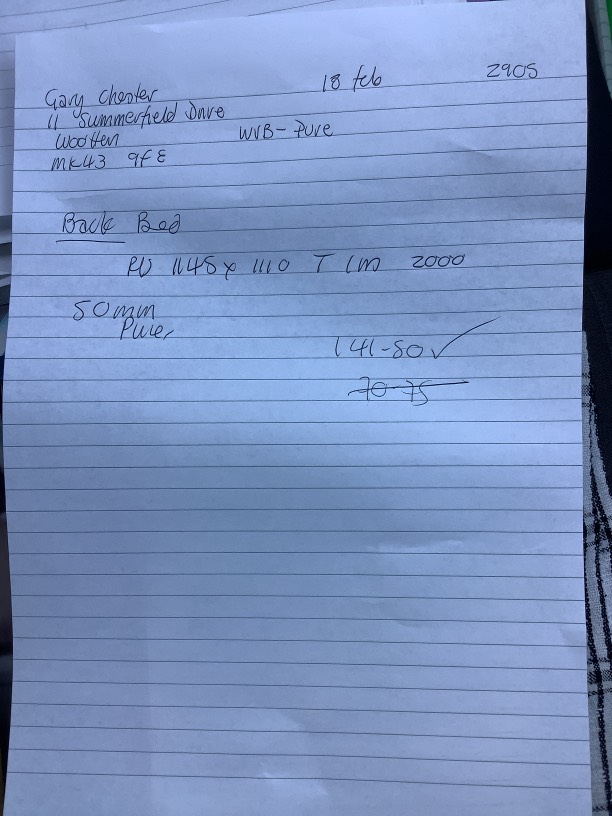 Gary Chester 18 feb 2905
11 Summerfield Drive
Wootten WVB - Pure
MK43 9FE
Back Bed
1145 x 1110 T 1m 2000
50mm
141-50 ✓
70-75